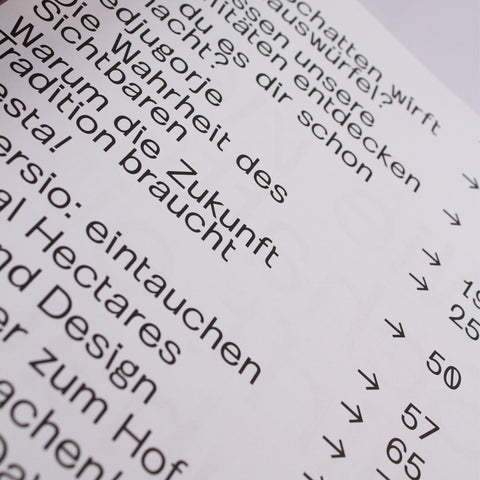 chatten wirft
auswürfel?
ssen unsere
litäten entdecken
du es dir schon
lacht?
edjugorje
Die Wahrheit des
Sichtbaren
Warum die Zukunft
Tradition braucht
esta!
ersio: eintauchen
al Hectares
nd Design
er zum Hof
→
→
→ 19
→ 25
→ 50
→ 57
→ 65
→